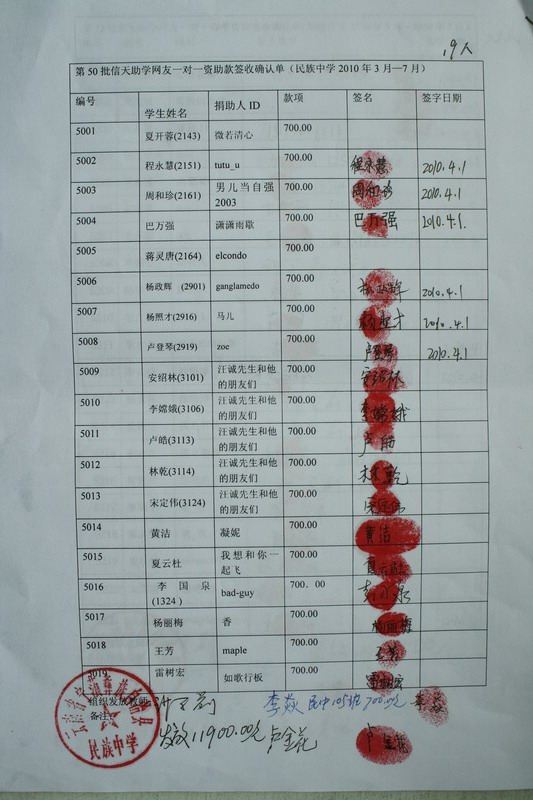 19人
第50批信天助学网友一对一资助款签收确认单（民族中学2010年3月—7月）
编号 学生姓名 捐助人ID 款项 签名 签字日期
5001 夏开蓉(2143) 微若清心 700.00
5002 程永慧(2151) tutu_u 700.00 程永慧 2010.4.1
5003 周和珍(2161) 男儿当自强2003 700.00 周和珍 2010.4.1
5004 巴万强 潇潇雨歇 700.00 巴万强 2010.4.1.
5005 蒋灵唐(2164) elcondo 700.00
5006 杨政辉 (2901) ganglamedo 700.00 杨政辉 2010.4.1
5007 杨照才(2916) 马儿 700.00 杨照才 2010.4.1
5008 卢登琴(2919) zoe 700.00 卢登琴 2010.4.1
5009 安绍林(3101) 汪诚先生和他的朋友们 700.00 安绍林
5010 李嫦娥(3106) 汪诚先生和他的朋友们 700.00 李嫦娥
5011 卢皓(3113) 汪诚先生和他的朋友们 700.00
5012 林乾(3114) 汪诚先生和他的朋友们 700.00 林乾
5013 宋定伟(3124) 汪诚先生和他的朋友们 700.00 宋定伟
5014 黄洁 凝妮 700.00 黄洁
5015 夏云杜 我想和你一起飞 700.00 夏云杜
5016 李国泉(1324) bad-guy 700.00
5017 杨丽梅 香 700.00 杨丽梅
5018 王芳 maple 700.00 王芳
5019 雷树宏 如歌行板 700.00 雷树宏
组织发放教师
备注
李焱 民中105班 700.00元
发放11900.00元 卢金花
民族中学